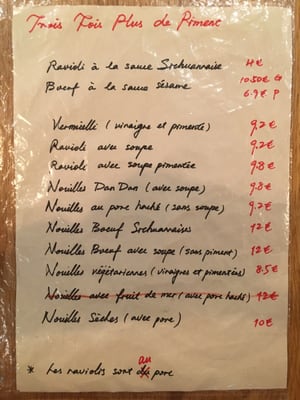 Trois Fois Plus de Piment
Ravioli à la sauce Sichuannaise 4€
Boeuf à la sauce sésame 10.50€ G
6.9€ P
Vermicelli (vinaigre et pimenté) 9.2€
Ravioli avec soupe 9.2€
Ravioli avec soupe pimentée 9.8€
Nouilles Dan Dan (avec soupe) 9.8€
Nouilles au porc haché (sans soupe) 9.2€
Nouilles Boeuf Sichuannaises 12€
Nouilles Boeuf avec soupe (sans piment) 12€
Nouilles végétariennes (vinaigres et pimentées) 8.5€
Nouilles avec fruit de mer (avec porc haché) 12€
Nouilles Sèches (avec porc) 10€
* Les raviolis sont au porc